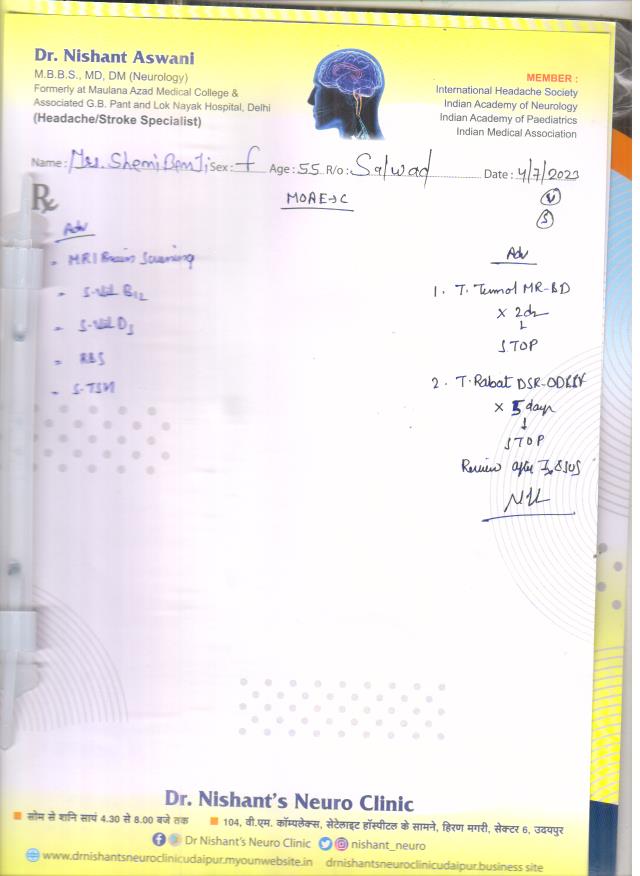 Dr. Nishant Aswani
M.B.B.S., MD, DM (Neurology)
Formerly at Maulana Azad Medical College &
Associated G.B. Pant and Lok Nayak Hospital, Delhi
(Headache/Stroke Specialist)
MEMBER :
International Headache Society
Indian Academy of Neurology
Indian Academy of Paediatrics
Indian Medical Association
Name : Mrs. Sex : f Age : 55 R/o : Salwad Date : 4/7/2023
Rx
V
S
Adv
- MRI Brain Screening
- S-Vit B12
- S-Vit D3
- RBS
- S-TSH
Adv
1. T. MR-BD
x 2d
↓
STOP
2. T. Rabat DSR-OD
x 5 days
↓
STOP
Review after
Dr. Nishant's Neuro Clinic
सोम से शनि सायं 4.30 से 8.00 बजे तक 104, वी.एम. कॉम्पलेक्स, सेटेलाइट हॉस्पीटल के सामने, हिरण मगरी, सेक्टर 6, उदयपुर
Dr Nishant's Neuro Clinic nishant_neuro
www.drnishantsneuroclinicudaipur.myounwebsite.in drnishantsneuroclinicudaipur.business site